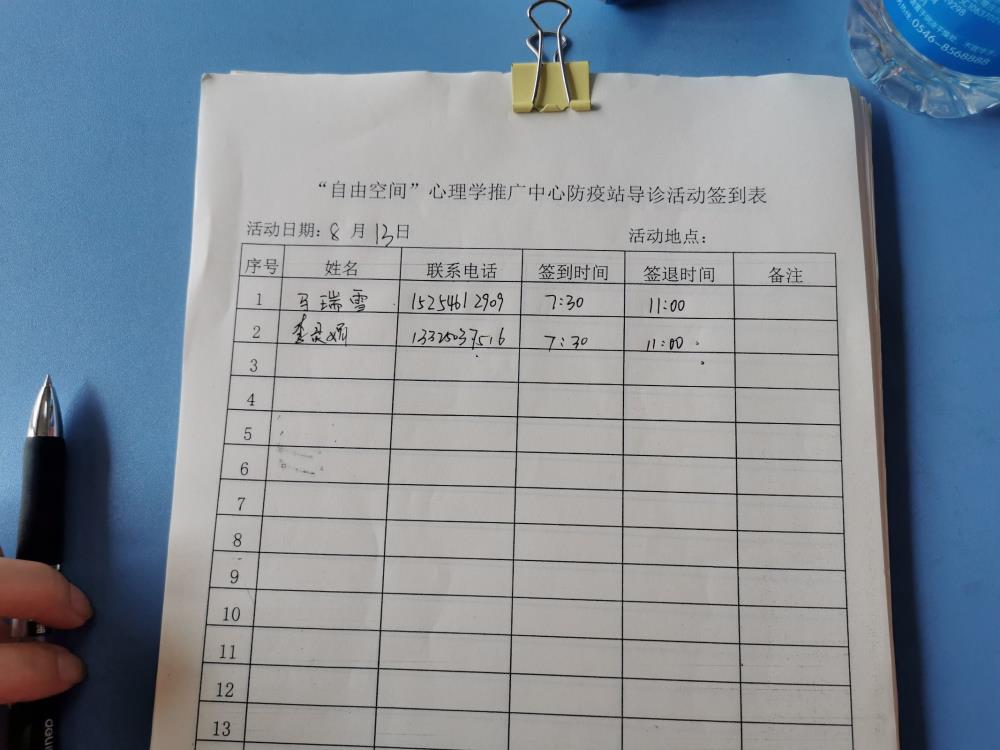 “自由空间”心理学推广中心防疫站导诊活动签到表
活动日期：8月13日 活动地点：
序号 姓名 联系电话 签到时间 签退时间 备注
1 马瑞雪 15254612909 7:30 11:00
2 李 娟 13325037516 7:30 11:00
3
4
5
6
7
8
9
10
11
12
13
0546-8568888